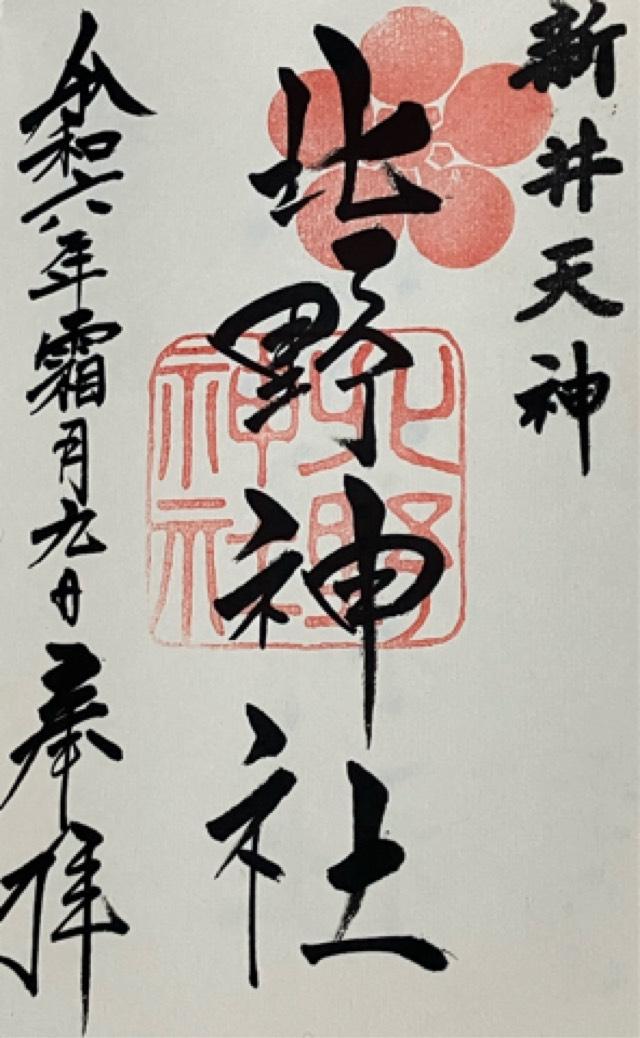 新井天神
北野神社
北野
神社
令和六年霜月九日
奉拝